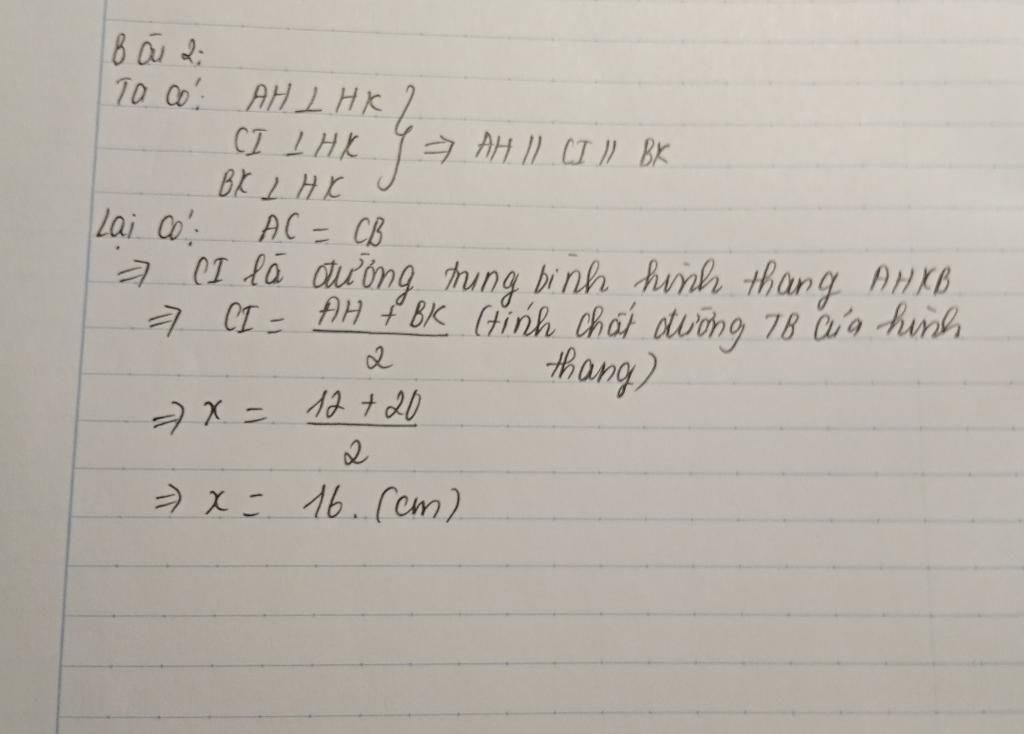 Bài 2:
Ta có: AH ⊥ HK
CI ⊥ HK } ⇒ AH // CI // BK
BK ⊥ HK
Lại có: AC = CB
⇒ CI là đường trung bình hình thang AHKB
⇒ CI = \frac{AH + BK}{2} (tính chất đường TB của hình
thang)
⇒ x = \frac{12 + 20}{2}
⇒ x = 16. (cm)